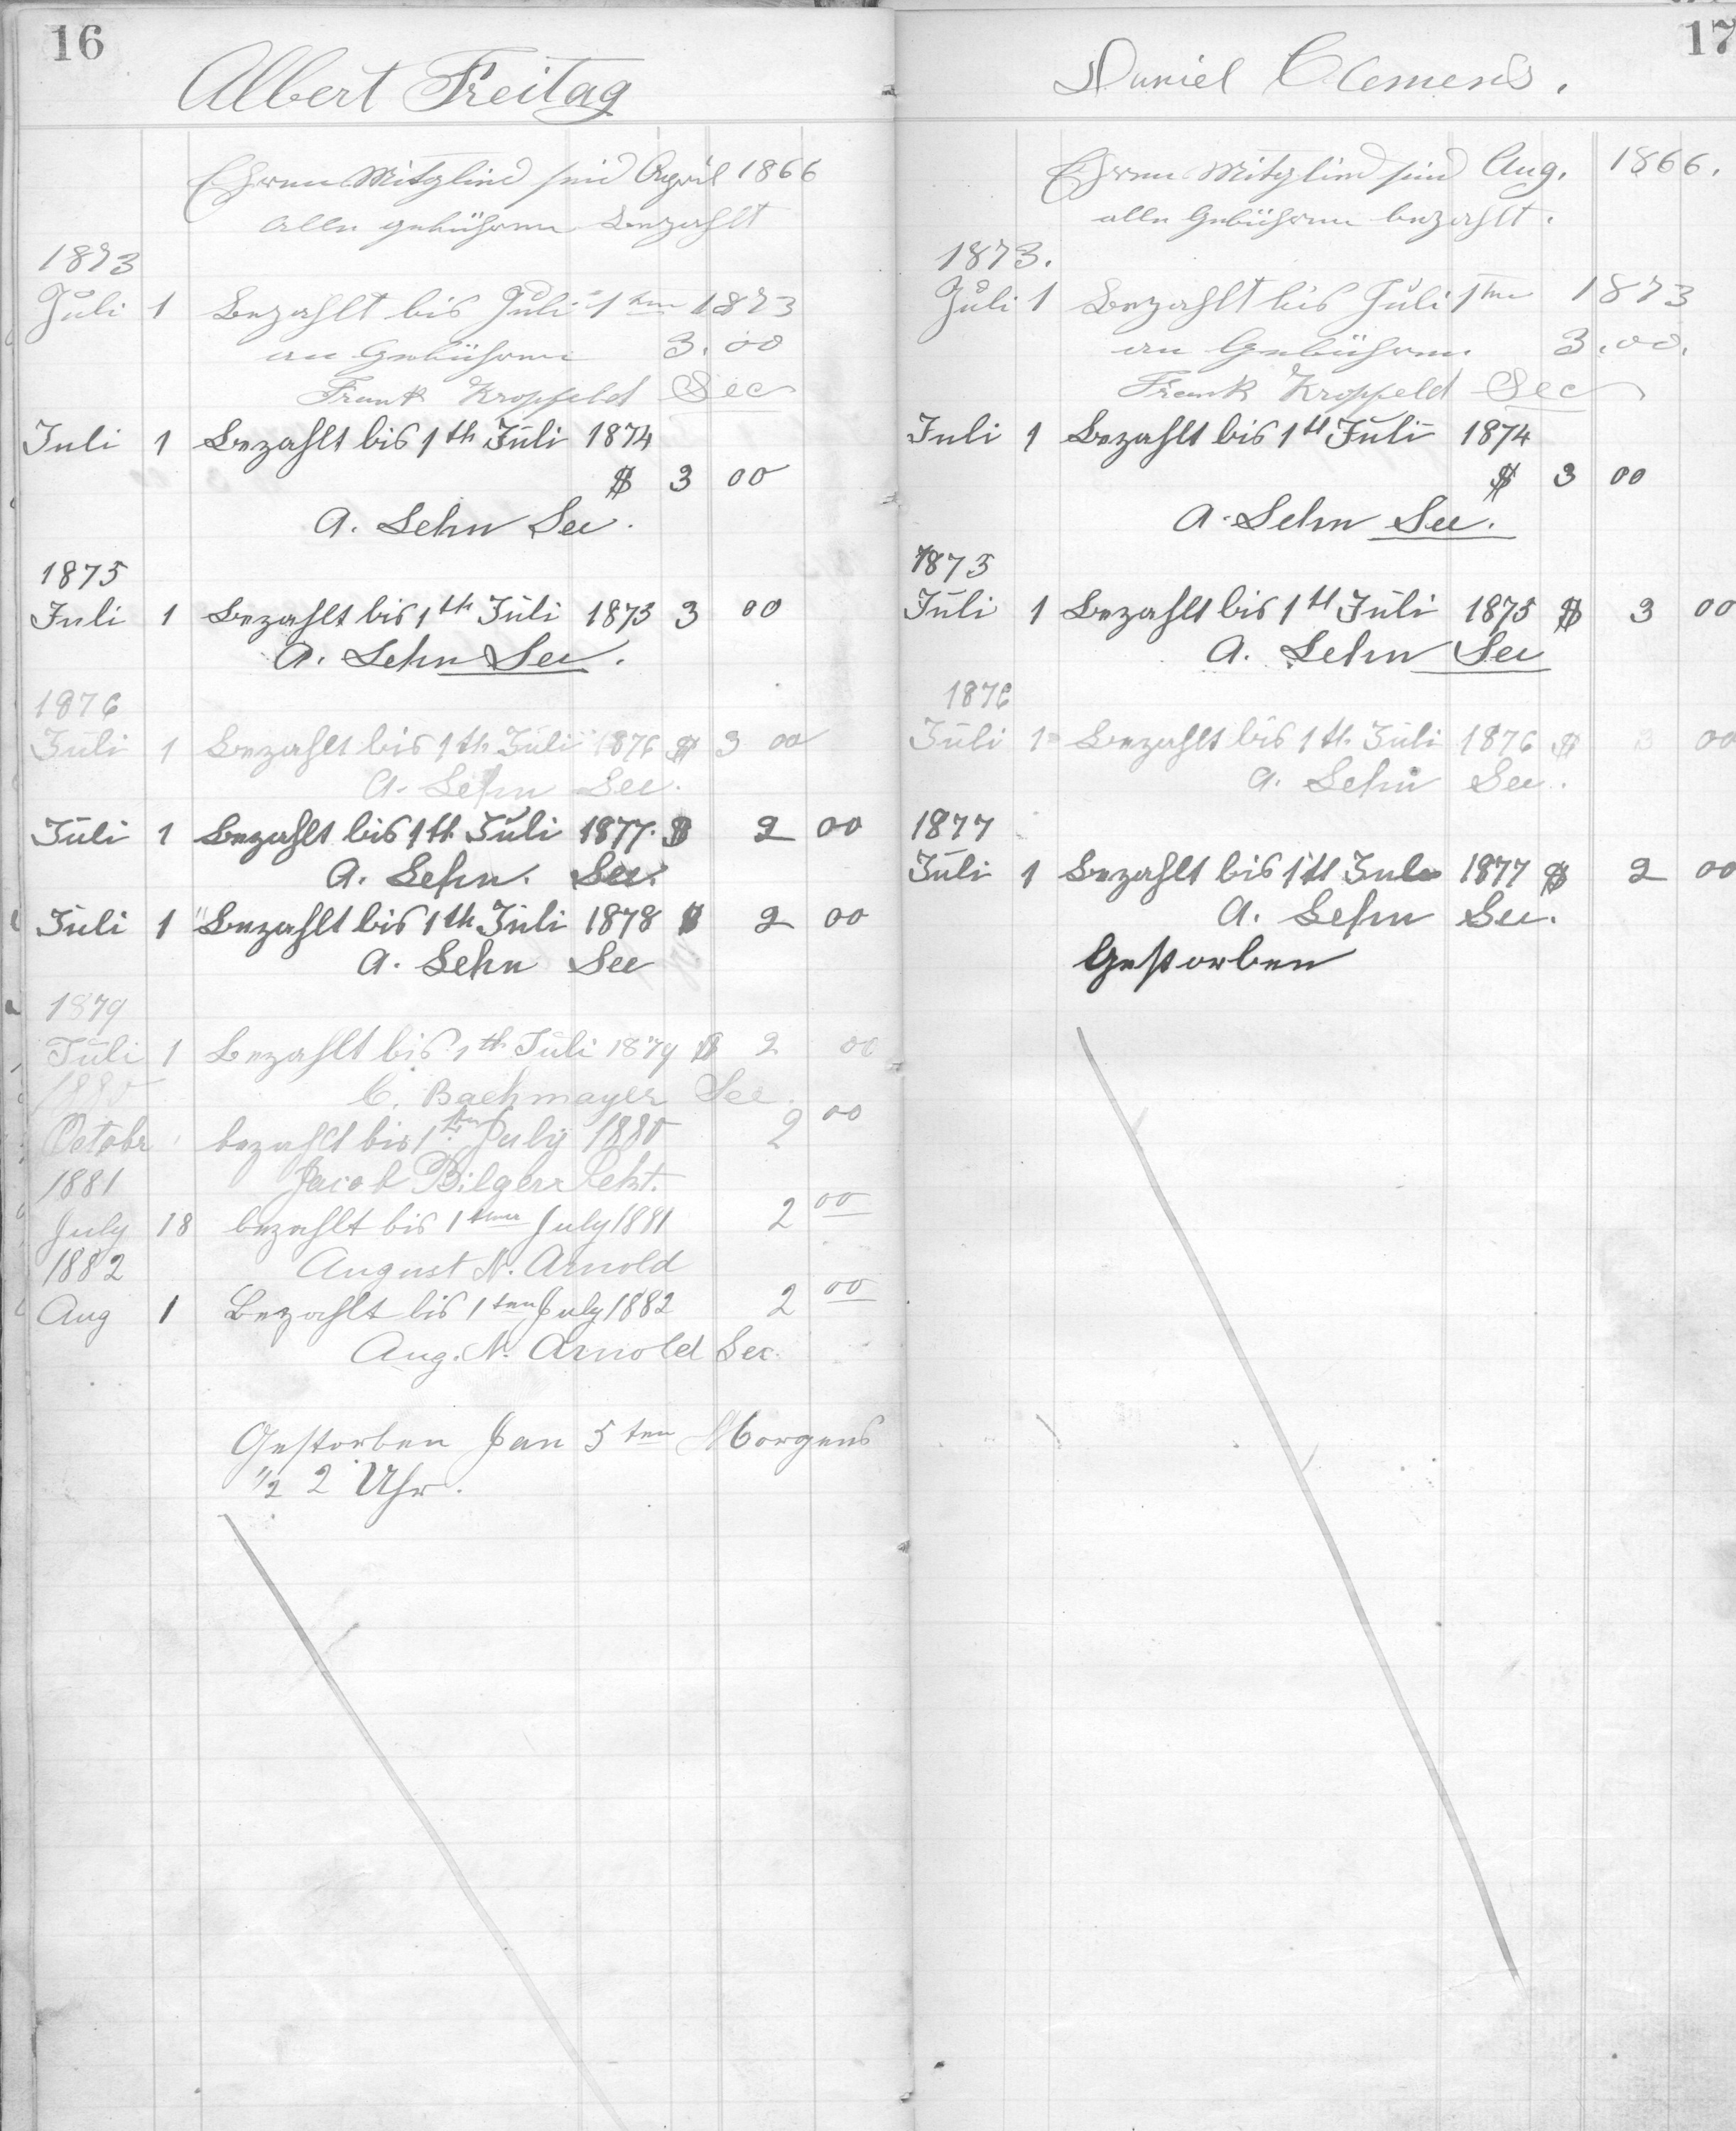 16
Albert Freitag
Ehren Mitglied seid April 1866
alle gebühren bezahlt
1873
Juli 1 Bezahlt bis Juli 1ten 1873
an Gebühren 3.00
Frank Kropfeld Sec
Juli 1 Bezahlt bis 1th Juli 1874
$ 3 00
A. Lehn Sec.
1875
Juli 1 Bezahlt bis 1th Juli 1875 3 00
A. Lehn Sec.
1876
Juli 1 Bezahlt bis 1th Juli 1876 $ 3 00
A. Lehn Sec.
Juli 1 Bezahlt bis 1th Juli 1877. $ 2 00
A. Lehn. Sec.
Juli 1 Bezahlt bis 1th Juli 1878 $ 2 00
A. Lehn Sec
1879
Juli 1 Bezahlt bis 1th Juli 1879 $ 2 00
1880 C. Bachmayer Sec.
Octobr bezahlt bis 1ten July 1880 2 00
1881 Jacob Bilger
July 18 bezahlt bis 1ten July 1881 2 00
1882 August N. Arnold
Aug 1 Bezahlt bis 1ten July 1882 2 00
Aug. N. Arnold Sec.
Gestorben Jan 5ten Morgens
1/2 2 Uhr.
17
Daniel Clemens.
Ehren Mitglied seid Aug. 1866.
alle Gebühren bezahlt.
1873.
Juli 1 Bezahlt bis Juli 1ten 1873
an Gebühren 3.00.
Frank Kropfeld Sec
Juli 1 Bezahlt bis 1tt Juli 1874
$ 3 00
A. Lehn Sec.
1875
Juli 1 Bezahlt bis 1tt Juli 1875 $ 3 00
A. Lehn Sec
1876
Juli 1 Bezahlt bis 1th Juli 1876 $ 3 00
A. Lehn Sec.
1877
Juli 1 Bezahlt bis 1tt Juli 1877 $ 2 00
A. Lehn Sec.
Gestorben